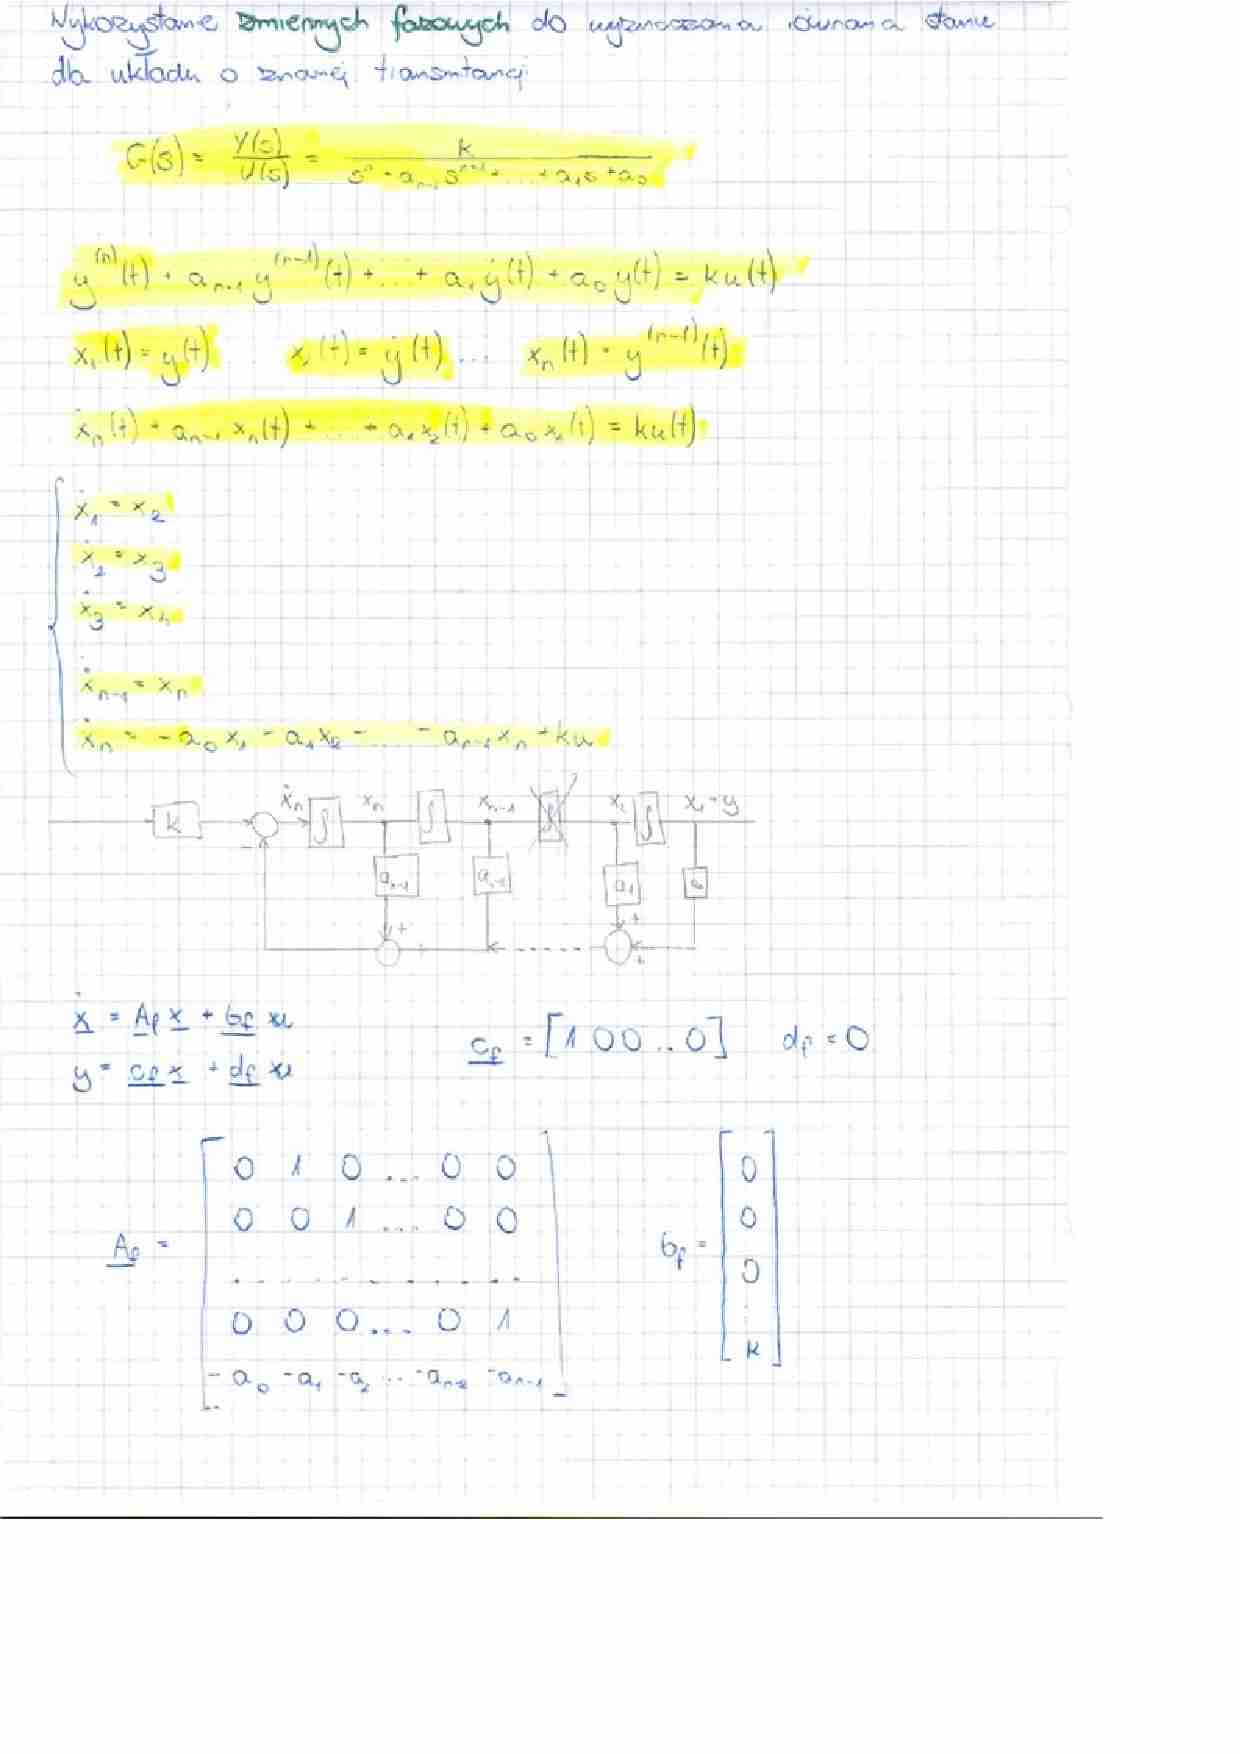 Wykorzystanie zmiennych fazowych do wyznaczania równania stanu
dla układu o znanej transmitancji.
G(s) = Y(s)/U(s) = k/(sⁿ + aₙ₋₁sⁿ⁻¹ + ... + a₁s + a₀)
y⁽ⁿ⁾(t) + aₙ₋₁ y⁽ⁿ⁻¹⁾(t) + ... + a₁ẏ(t) + a₀y(t) = ku(t)
x₁(t) = y(t) x₂(t) = ẏ(t) ... xₙ(t) = y⁽ⁿ⁻¹⁾(t)
ẋₙ(t) + aₙ₋₁xₙ(t) + ... + a₁x₂(t) + a₀x₁(t) = ku(t)
ẋ₁ = x₂
ẋ₂ = x₃
ẋ₃ = x₄
ẋₙ₋₁ = xₙ
ẋₙ = -a₀x₁ - a₁x₂ - ... - aₙ₋₁xₙ + ku
k ẋₙ ∫ xₙ ∫ xₙ₋₁ x₂ ∫ x₁ = y
aₙ₋₁ a₁ a₀
ẋ = A_f x + b_f u
y = c_f x + d_f u
c_f = [1 0 0 .. 0] d_f = 0
A_f =
0 1 0 ... 0 0
0 0 1 ... 0 0
. . . . . . . . .
0 0 0 ... 0 1
-a₀ -a₁ -a₂ ... -aₙ₋₂ -aₙ₋₁
b_f =
0
0
0
⋮
k